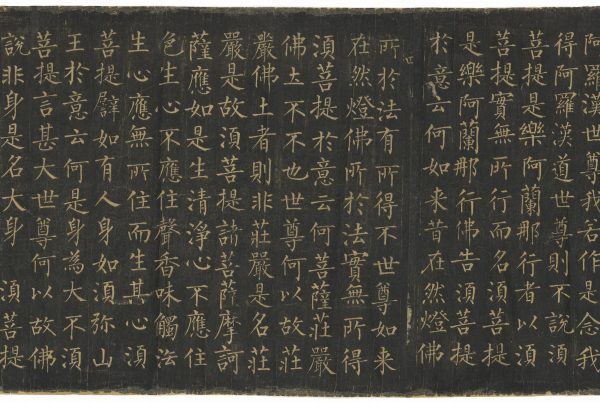 阿羅漢世尊我若作是念我
得阿羅漢道世尊則不說須
菩提是樂阿蘭那行者以須
菩提實無所行而名須菩提
是樂阿蘭那行佛告須菩提
於意云何如来昔在然燈佛
所於法有所得不世尊如来
在然燈佛所於法實無所得
須菩提於意云何菩薩莊嚴
佛土不不也世尊何以故莊
嚴佛土者則非莊嚴是名莊
嚴是故須菩提諸菩薩摩訶
薩應如是生清淨心不應住
色生心不應住聲香味觸法
生心應無所住而生其心須
菩提譬如有人身如須弥山
王於意云何是身為大不須
菩提言甚大世尊何以故佛
說非身是名大身 須菩提